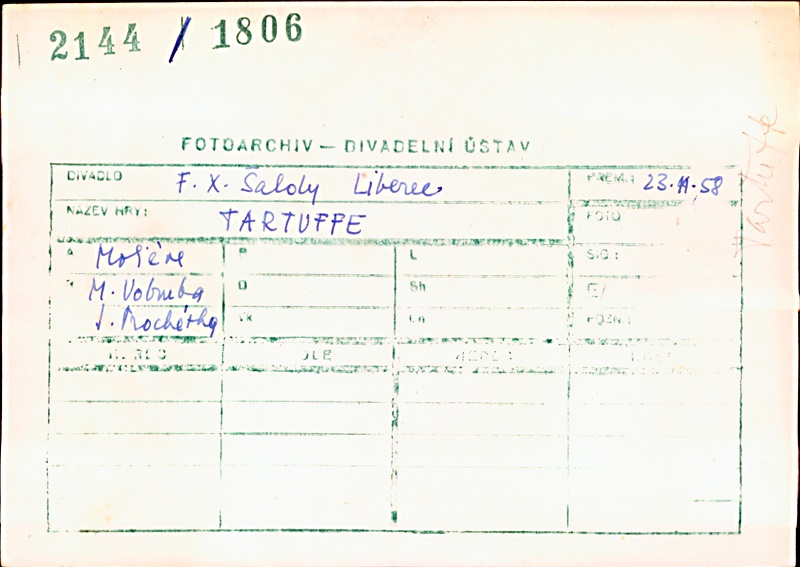 2144 / 1806
FOTOARCHIV — DIVADELNÍ ÚSTAV
DIVADLO F. X. Šaldy Liberec PREM.: 23.11.58
NÁZEV HRY: TARTUFFE FOTO
A Molière P L SIG.:
R M. Vobruba D Sh
J. Procházka Vk Ln POZN.:
Tartuffe